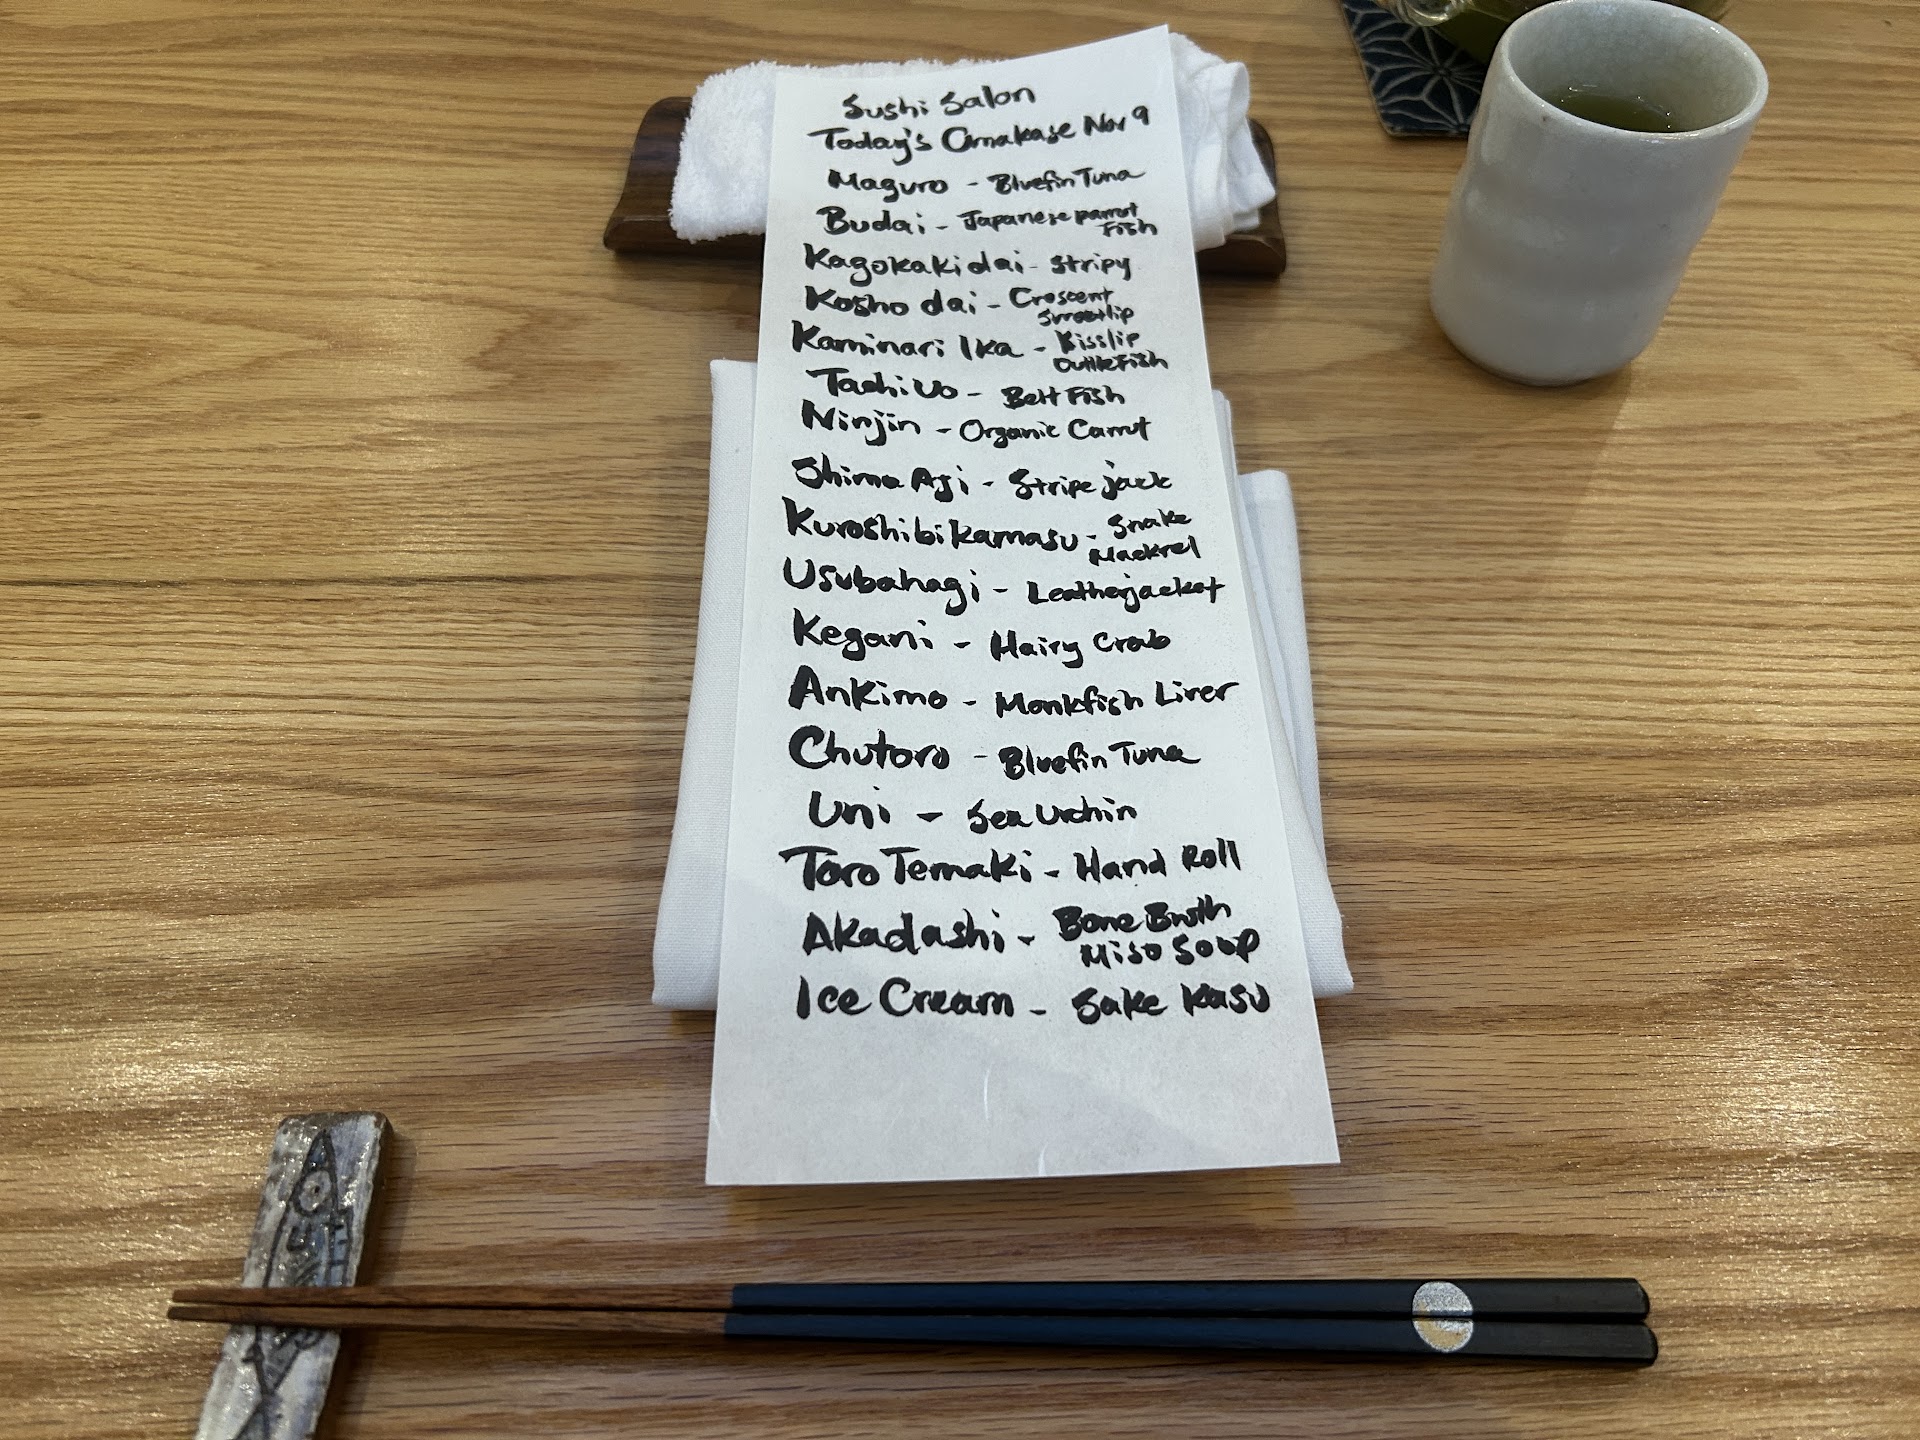 Sushi Salon
Today's Omakase Nov 9
Maguro - Bluefin Tuna
Budai - Japanese parrot
Fish
Kagokakidai - Stripy
Kosho dai - Crescent
Sweetlip
Kaminari Ika - Kisslip
Cuttlefish
Tachiuo - Belt Fish
Ninjin - Organic Carrot
Shima Aji - Stripe jack
Kuroshibikamasu - Snake
Mackrel
Usubahagi - Leatherjacket
Kegani - Hairy Crab
Ankimo - Monkfish Liver
Chutoro - Bluefin Tuna
Uni - Sea Urchin
Toro Temaki - Hand Roll
Akadashi - Bone Broth
Miso Soup
Ice Cream - Sake Kasu